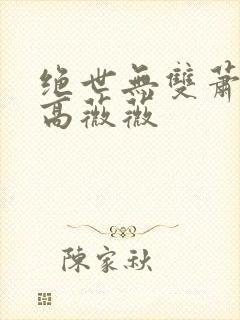 绝世無雙蕭
高薇薇
陳家秋